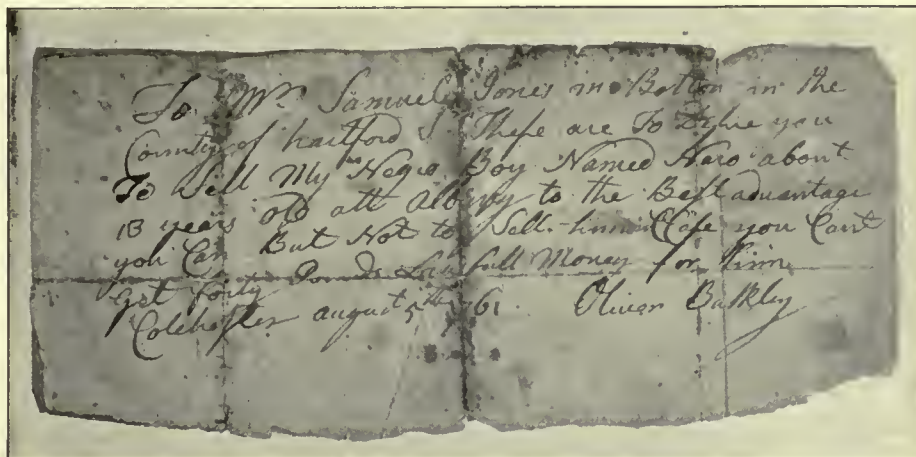 To Mr Samuel Jones in Bolton in the
County of hartford Sr These are To Desire you
To Sell My Negro Boy Named Nero about
13 years old att Albany to the Best advantage
you Can But Not to Sell him in Case you Cant
Get forty Pounds Lawfull Money for him
Colchester august 5th 61 Oliver Bulkley